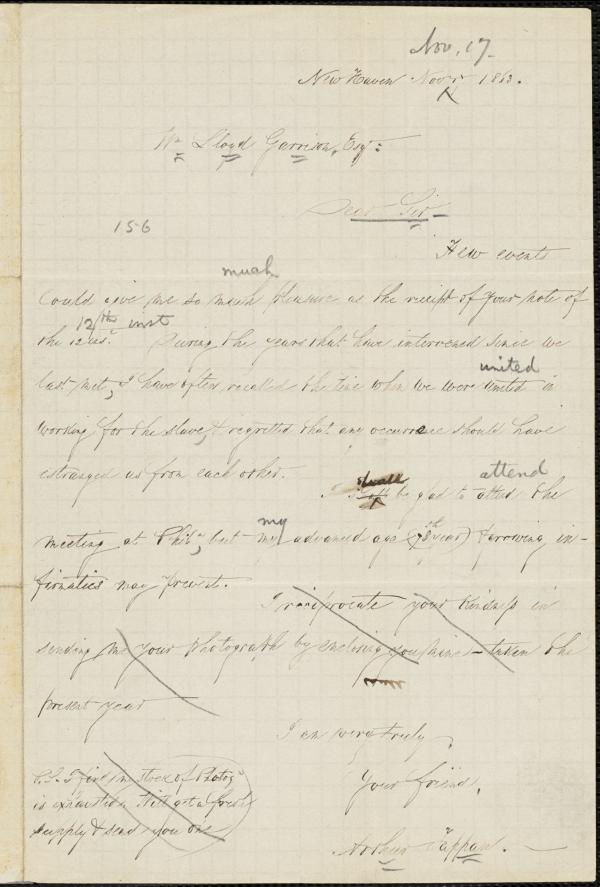 Nov. 17
New Haven Nov. 1863.
Wm Lloyd Garrison, Esq:
Dear Sir—
156
Few events
much
could give me so much pleasure as the receipt of your note of
12th inst
the 12 ins. During the years that have intervened since we
united
last met, I have often recalled the time when we were united in
working for the slave, & regretted that any occurrence should have
estranged us from each other.
shall attend
I shall be glad to attend the
my
meeting at Phila, but my advanced age (78th year) & growing in-
firmities may prevent.
I reciprocate your kindness in
sending me your photograph by enclosing you mine — taken the
present year
I am very truly,
Your friend,
Arthur Tappan. —
P.S. I find my stock of Photogs
is exhausted. Will get a fresh
supply & send you one